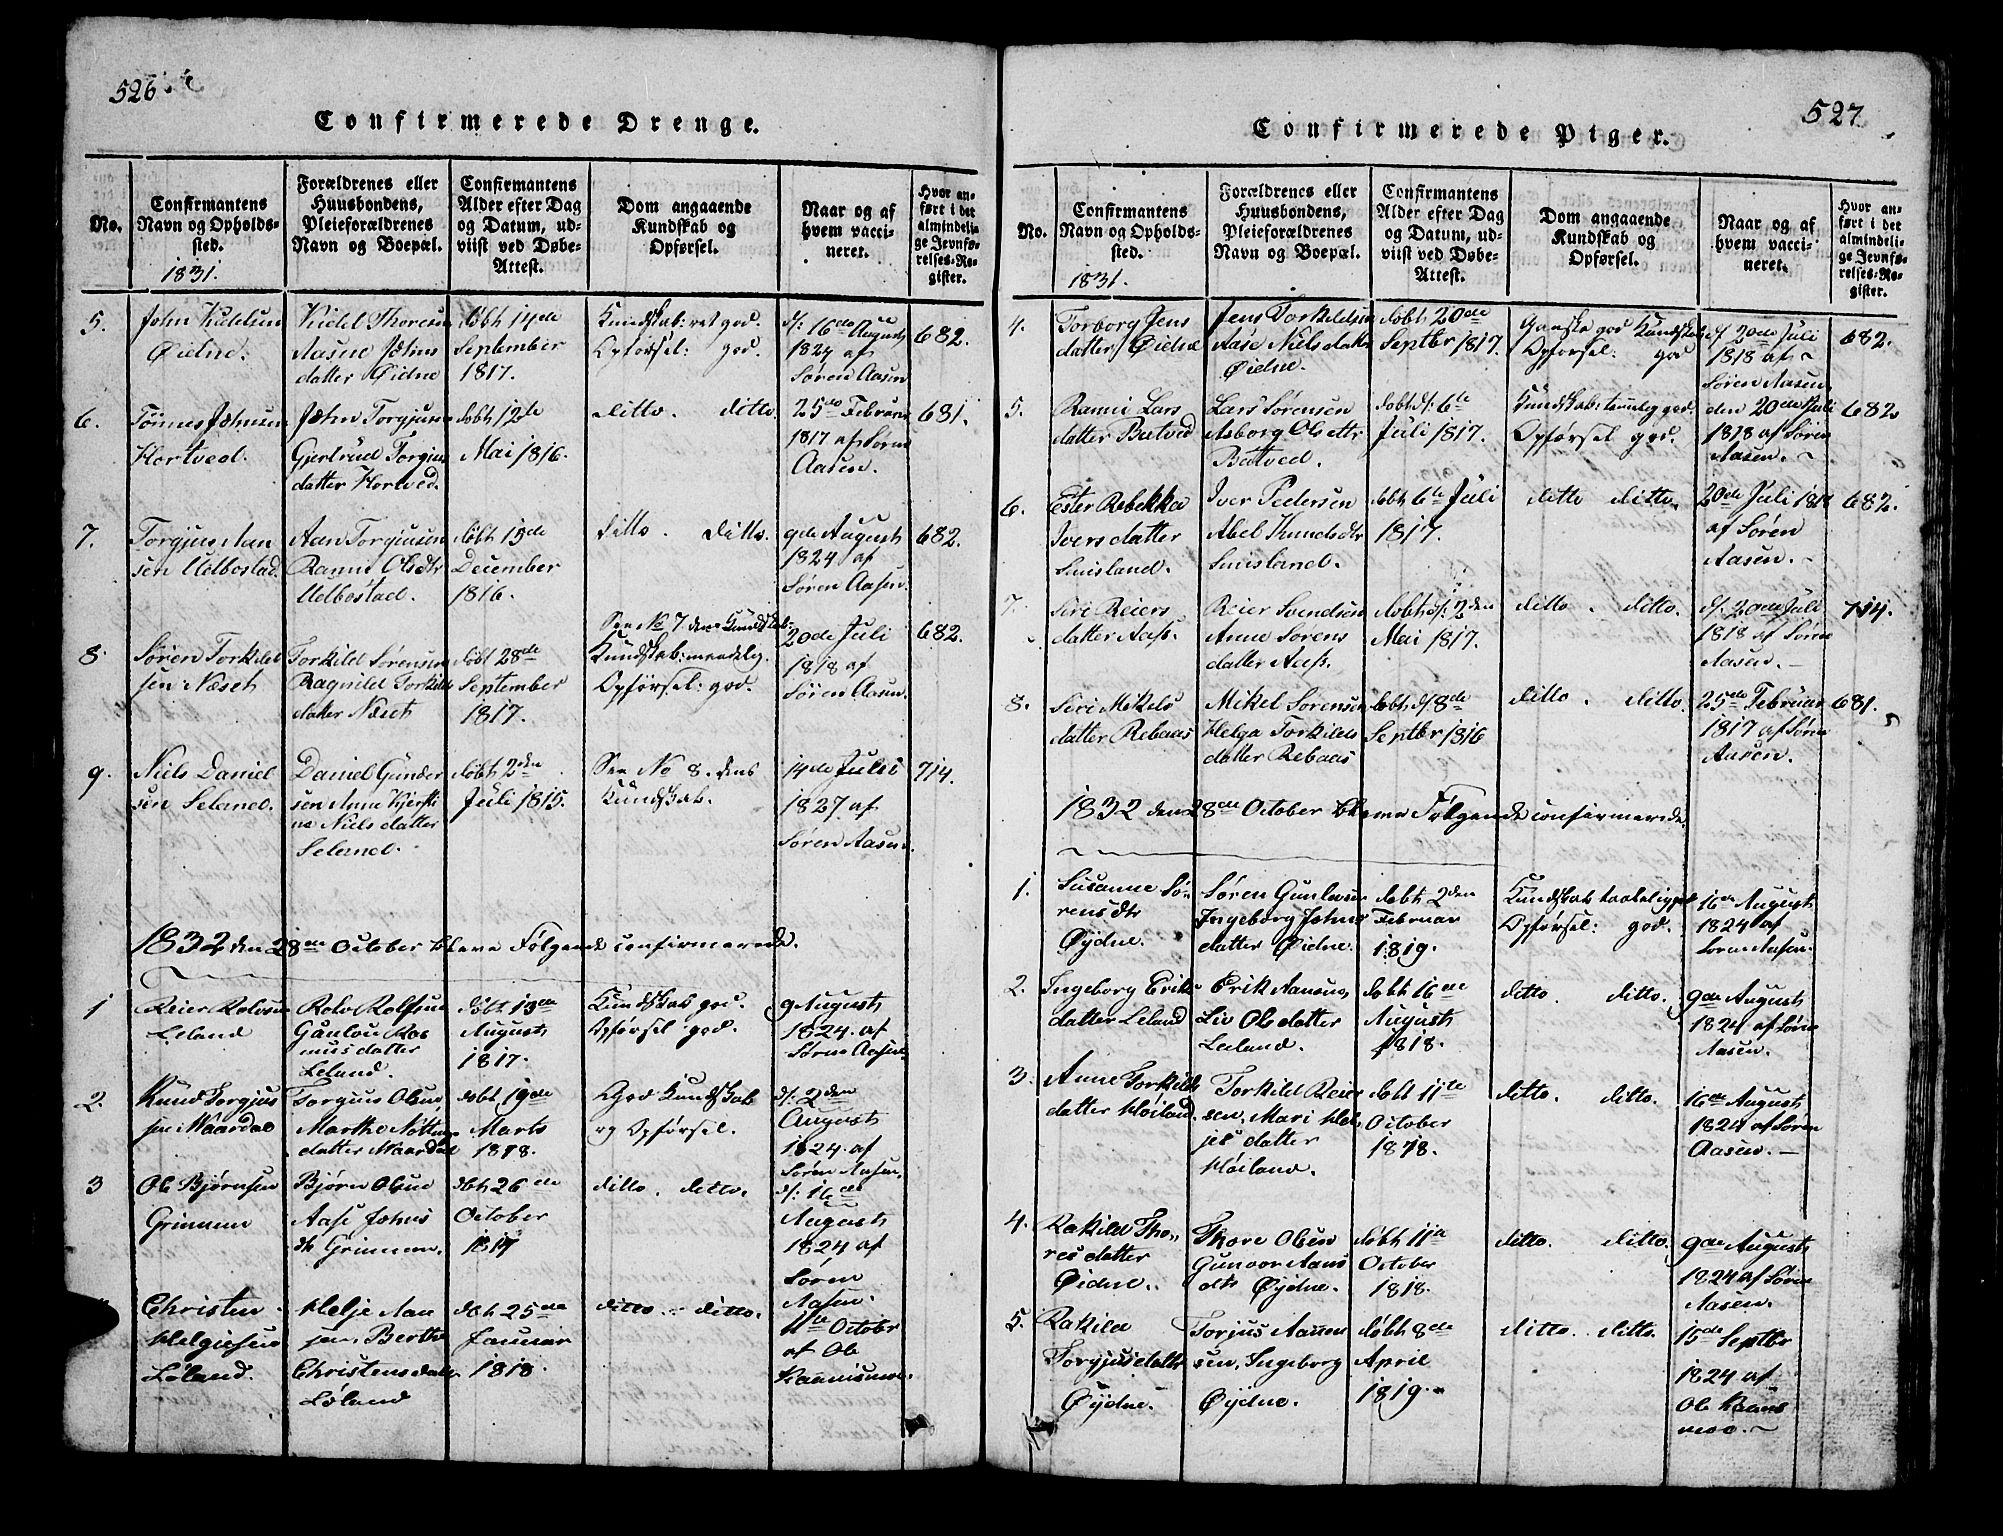 526
Confirmerede Drenge.
No.
Confirmantens
Navn og Opholds-
sted.
1831.
Forældrenes eller
Huusbondens,
Pleieforældrenes
Navn og Boepæl.
Confirmantens
Alder efter Dag
og Datum, ud-
viist ved Døbe-
Attest.
Dom angaaende
Kundskab og
Opførsel.
Naar og af
hvem vacci-
neret.
Hvor an-
ført i det
almindeli-
ge Jevnfø-
relses-Re-
gister.
5.
John
Øidne.
Kidel Thoresen
Aasne Johns
datter Øidne
døbt 14de
September
1817.
Kundskab: ret god.
Opførsel: god.
d: 16de August
1824 af
Søren Aasen
682.
6.
Tönnes Johnsen
Hortved.
John Torgjusen
Gjertrud Torgjus
datter Hortved.
døbt 12te
Mai 1816.
ditto. ditto.
25de Februar
1817 af Søren
Aasen.
681.
7.
Torgjus Aan
sen Udbostad.
Aan Torgiusen
Ranni Olsdtr
Udbostad.
døbt 15de
December
1816.
ditto. ditto.
9de August
1824 af
Søren Aasen.
682.
8.
Søren Torkild
sen Næset
Torkild Sørensen
Ragnild Torkilds
datter Næset
døbt 28de
September
1817.
See No 7. dens Kundskab:
Kundskab: maadelig.
Opførsel: god.
20de Juli
1818 af
Søren Aasen
682.
9.
Niels Daniel
sen Seland.
Daniel Gunder
sen Anne Kjersti
ne Niels datter
Seland.
døbt 2den
Juli 1815.
See No 8. dens
Kundskab.
14de Juli
1827 af
Søren Aasen.
714.
1832 den 28de October bleve Følgende confirmerede.
1
Reier Rolvsen
Leland
Rolv Rolfsen
Gunlou Ras
mus datter
Leland.
døbt 13de
August
1817.
Kundskab god.
Opførsel god.
9 August
1824. af
Søren Aasen
2.
Knud Torgjus
sen Maardal
Torgius Olsen
Marthe
datter Maardal
døbt 19de
Marts
1818.
God Kundskab
og Opførsel.
d: 2den
August
1824. af
Søren Aasen.
3
Ole Bjørnsen
Grimmen
Bjørn Olsen
Aase Johns
dtr Grimmen.
døbt 26de
October
1817
ditto. ditto.
d: 16de
August
1824 af
Søren
Aasen.
Christen
Helgiesen
Løland.
Helje Aan
sen. Berthe
Christensdatter
Løland
døbt 25de
Januar
1818.
ditto. ditto.
11te October
af Ole
527
Confirmerede Piger.
No.
Confirmantens
Navn og Opholds-
sted.
1831.
Forældrenes eller
Huusbondens,
Pleieforældrenes
Navn og Boepæl.
Confirmantens
Alder efter Dag
og Datum, ud-
viist ved Døbe-
Attest.
Dom angaaende
Kundskab og
Opførsel.
Naar og af
hvem vacci-
neret.
Hvor an-
ført i det
almindeli-
ge Jevnfø-
relses-Re-
gister.
4.
Torborg Jens
datter Øidne
Jens Torkildsen
Aase Nielsdatter
Øidne.
døbt 20de
Septbr 1817.
Ganske god Kundskab
Opførsel: god
d 20de Juli
1818 af
Søren Aasen
682.
5.
Ranni Lars
datter Butved
Lars Sørensen
Asborg Olsdtr
Butved.
døbt d: 6te
Juli 1817.
Kundskab: temlig god.
Opførsel god.
den 20de Juli
1818 af Søren
Aasen.
682
6.
Ester Rebekka
Ivers datter
Smisland.
Iver Pedersen
Abel Knudsdtr
Smisland.
døbt 6te Juli
1817.
ditto ditto.
20de Juli 1818
af Søren
Aasen.
682.
7.
Siri Reiers
datter Aas.
Reier Svendsen
Anne Sørens
datter Aas.
døbt d: 2den
Mai 1817.
ditto. ditto.
d: 20de Juli
1818 af Søren
Aasen.
714.
8.
Siri Mikels
datter Rebaas
Mikel Sørensen
Helga Torkilds
datter Rebaas
døbt d: 8de
Septbr 1816
ditto. ditto.
25de Februar
1817 af Søren
Aasen.
681.
1832 den 28de October bleve Følgende confirmerede.
1.
Susanne Sø-
rensdtr
Øydne.
Søren Gunlevsen
Ingeborg Johns
datter Øidne.
døbt 2den
Februar
1819.
Kundskab taaleliggod
Opførsel: god.
16de August
1824 af
Søren Aasen.
2.
Ingeborg Eriks
datter Leland
Erik Aansen,
Liv Olsdatter
Leland.
døbt 16de
August
1818.
ditto. ditto.
9de August
1824 af Søren
Aasen.
3.
Anne Torkilds
datter Høiland.
Torkild Reier
sen, Mari Hel
jes datter
Høiland.
døbt 11te
October
1818.
ditto. ditto.
16de August
1824 af Søren
Aasen.
4.
Rakild Tho-
res datter
Øidne.
Thore Olsen
Gunvor Aans
dtr Øydne.
døbt 11te
October
1818.
ditto. ditto.
9de August
1824 af Søren
Aasen.
5.
Rakild
Torgjusdatter
Øydne.
Torjus Aannen
sen, Ingeborg
Øydne.
døbt 8de
April
1819.
ditto. ditto.
15de Septbr
1824 af
Ole